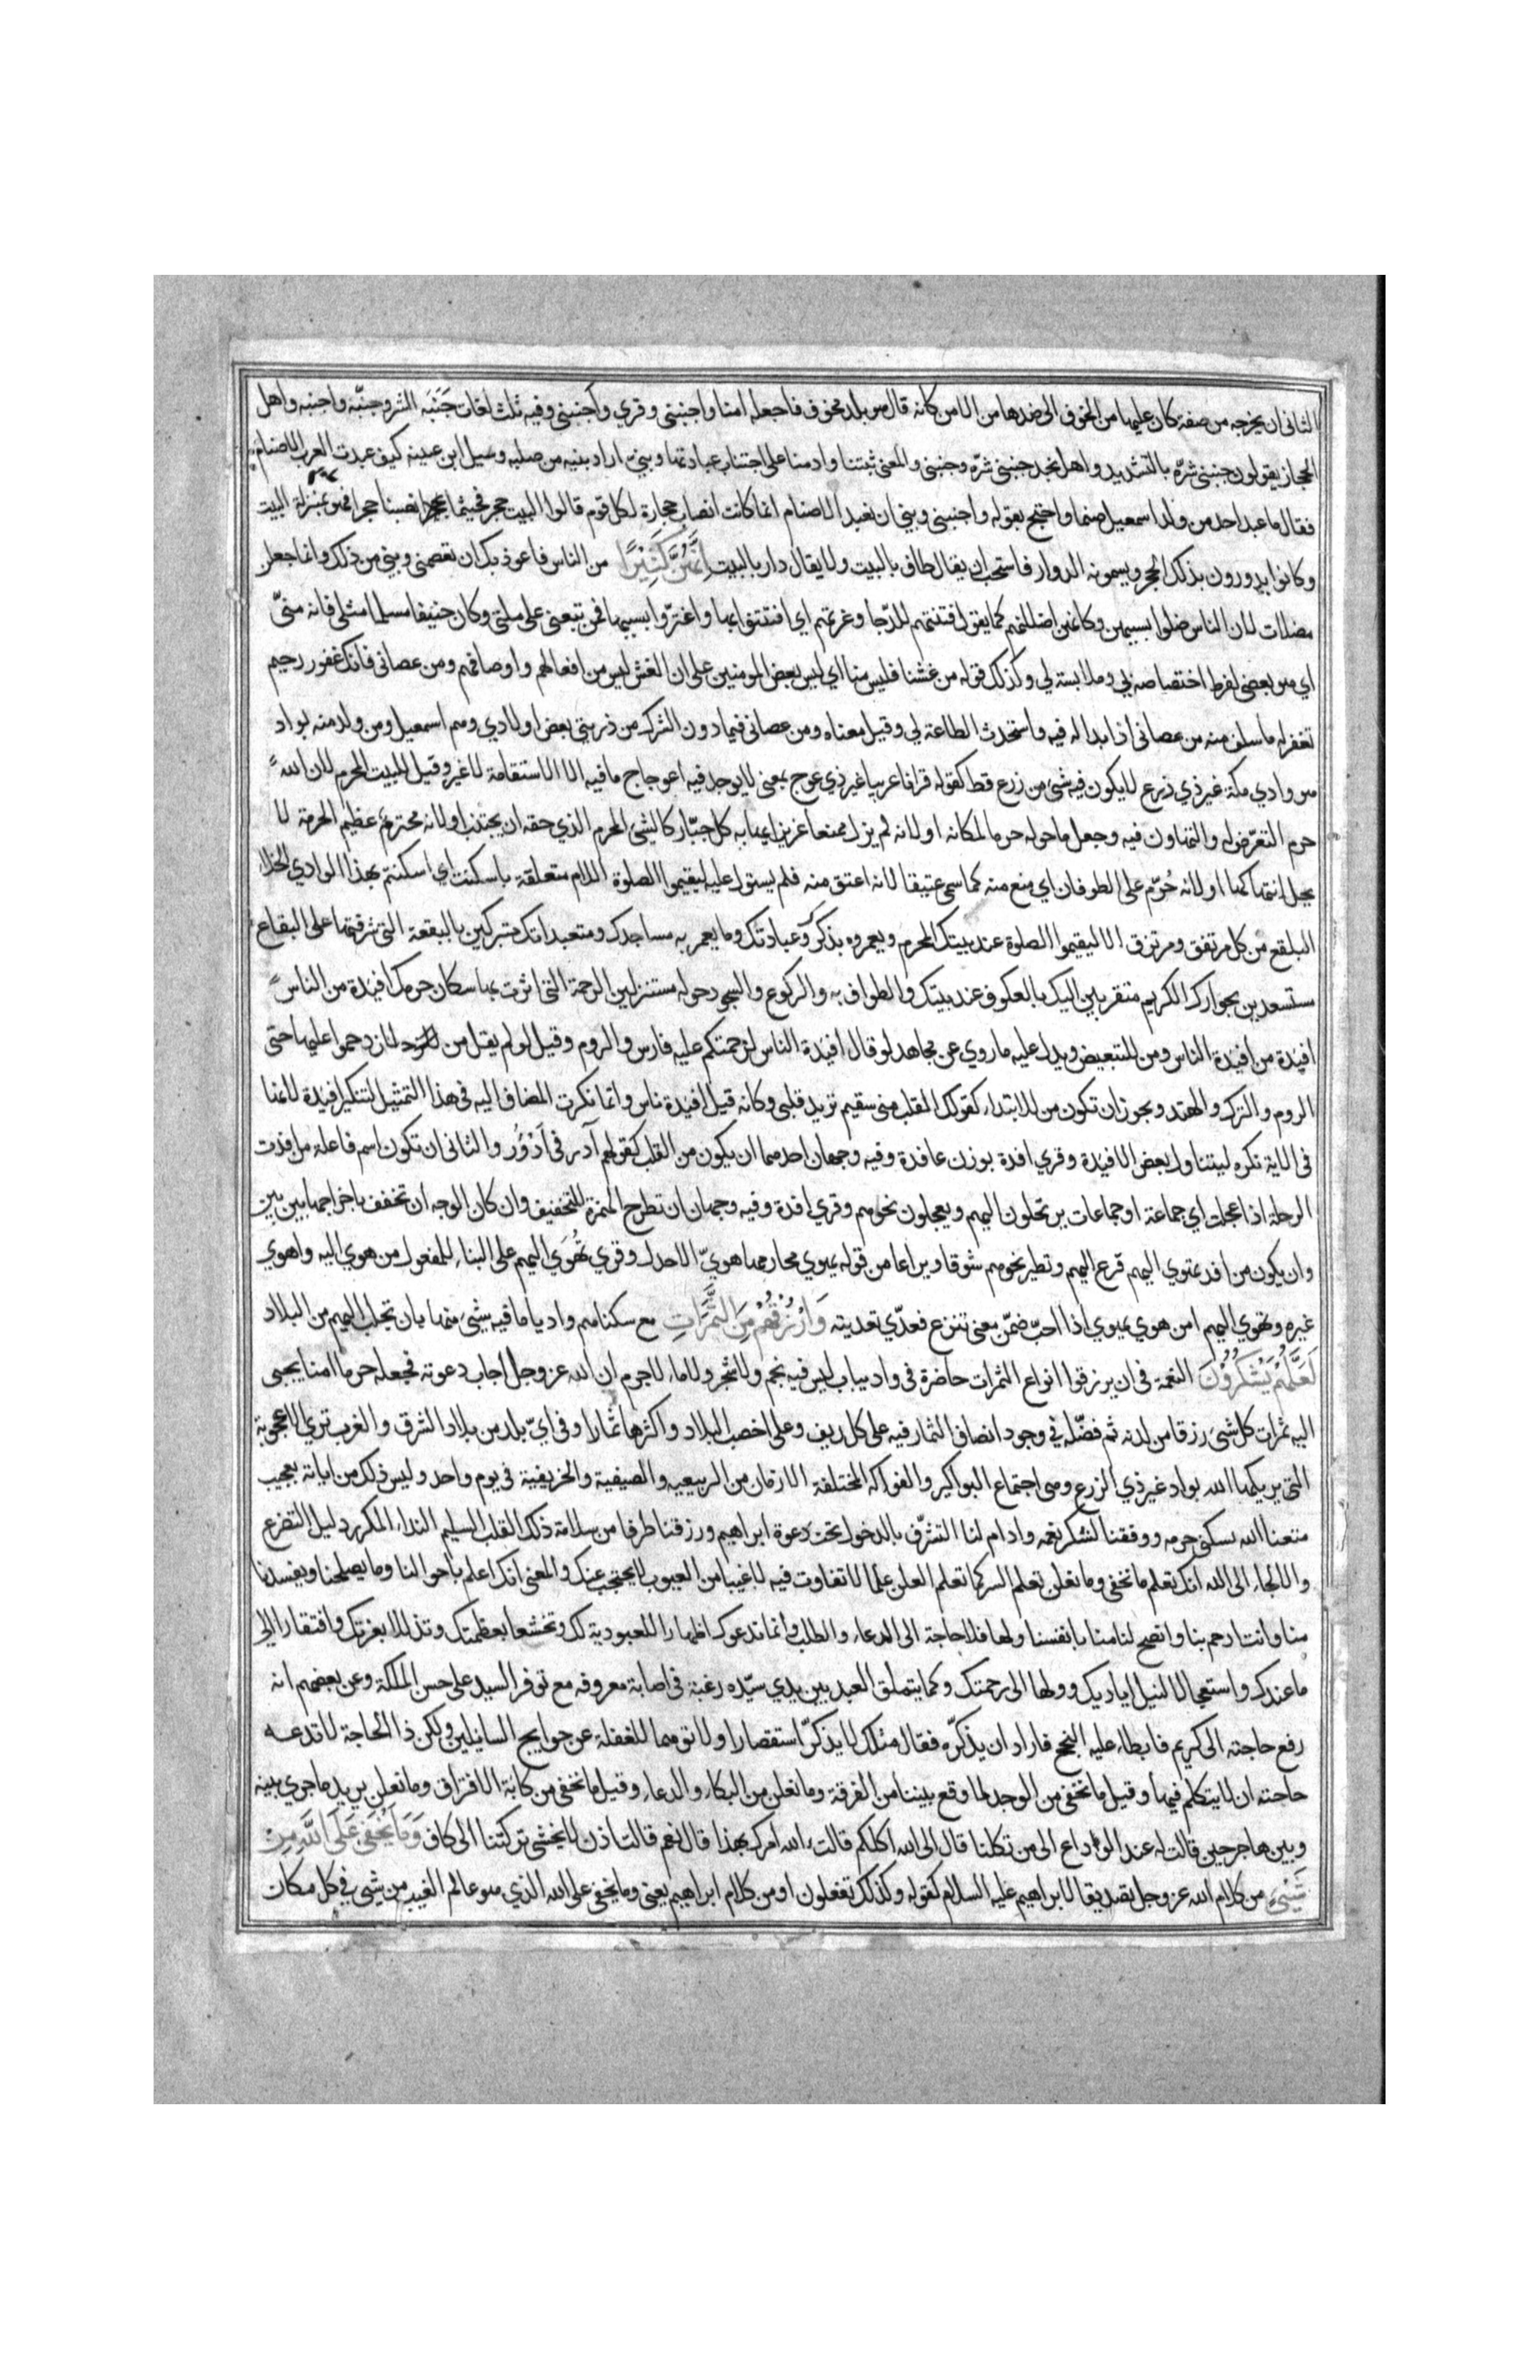 الثاني ان يخرجه من صفة كان عليها من الخوف الى ضدها من الامن كانه قال هو بلد مخوف فاجعله امنا واجنبني وقري وأجنبني وفيه ثلث لغات جَنَبَه الشر وجنّبه واجنبه واهل
الحجاز يقولون جنبني شرّه بالتشديد واهل نجد جنبني شرّه وجنبني والمعنى ثبتنا وادمنا على اجتناب عبادتها وبنيّ اراد بنيه من صلبه وسيل ابن عيينه كيف عبدت العرب الاصنام
فقال ما عبد احد من ولد اسمعيل صنما واحتج بقوله واجنبني وبني ان نعبد الاصنام انما كانت انصاب حجارة لكل قوم قالوا البيت حجر فحيثما نصبنا حجرا فهو بمنزلة البيت
وكانوا يدورون بذلك الحجر ويسمونه الدوار فاستحب ان يقال طاف بالبيت ولا يقال دار بالبيت اِنَّهُنَّ كَثِيْرًا من الناس فاعوذ بك ان تعصمني وبني من ذلك وانما جعلن
مضلات لان الناس ضلوا بسببهن وكانهن اضللنهم كما يقول فتنتهم الدنيا وغرتهم اي افتتنوا بها واغترّوا بسببها فمن تبعني على ملتي وكان حنيفا مسلما مثلي فانه منيّ
اي هو بعضي لفرط اختصاصه بي وملابسته لي وكذلك قوله من غشنا فليس منا اي ليس بعض المومنين على ان الغش ليس من افعالهم واوصافهم ومن عصاني فانك غفور رحيم
تغفر له ما سلف منه من عصاني اذا بدا له فيه واستحدث الطاعة لي وقيل معناه ومن عصاني فيما دون الشرك من ذريتي بعض اولادي وهم اسمعيل ومن ولد منه بواد
هو وادي مكة غير ذي زرع لا يكون فيه شئ من زرع قط كقوله قرانا عربيا غير ذي عوج بمعنى لا يوجد فيه اعوجاج ما فيه الا الاستقامة لا غير وقيل للبيت المحرم لان الله
حرم التعرّض له والتهاون فيه وجعل ما حوله حرما لمكانه او لانه لم يزل ممنعا عزيزا يهابه كل جبّار كالشئ المحرم الذي حقه ان يجتنب او لانه محترم عظيم الحرمة لا
يحل انتهاكها او لانه حُرّم على الطوفان اي منع منه كما سمي عتيقا لانه اعتق منه فلم يستول عليه ليقيموا الصلوة اللام متعلقة باسكنت اي اسكنتهم بهذا الوادي الخلا
البلقع من كل مرتفق ومرتزق الا ليقيموا الصلوة عند بيتك المحرم ويعمروه بذكرك وعبادتك وما يعمر به مساجدك ومتعبداتك متبركين بالبقعة التي شرفتها على البقاع
مستسعدين بجوارك الكريم متقربين اليك بالعكوف عند بيتك والطواف به والركوع والسجود حوله مستنزلين الرحمة التي اثرت بها سكان حرمك افيدة من الناس
افيدة من افيدة الناس ومن للتبعيض ويدل عليه ما روي عن مجاهد لو قال افيدة الناس لزحمتكم عليه فارس والروم وقيل لو لم يقل من لازدحموا عليها حتى
الروم والترك والهند ويجوز ان تكون من للابتداء كقولك القلب مني سقيم تريد قلبي وكانه قيل افيدة ناس وانما نكرت المضاف اليه في هذا التمثيل لتنكير افيدة لانها
في الاية نكره ليتناول بعض الافيدة وقري افدة بوزن عافدة وفيه وجهان احدهما ان يكون من القلب كقولهم آدر في اَدْوُر والثاني ان تكون اسم فاعلة من افدت
الرحلة اذا عجلت اي جماعة او جماعات يرتحلون اليهم ويعجلون نحوهم وقري افدة وفيه وجهان ان تطرح الهمزة للتخفيف وان كان الوجه ان تخفف باخراجها بين بين
وان يكون من افد تهوي اليهم تسرع اليهم وتطير نحوهم شوقا ونزاعا من قوله يهوي مخارمها هويّ الاجدل وقري تُهْوَى اليهم على البناء للمفعول من هوي اليه واهوي
غيره وتهوي اليهم من هوي يهوي اذا احبّ ضمّن معنى تنزع فعدّي تعديته وَارْزُقْهُمْ مِنَ الثَّمَرَاتِ مع سكناهم واديا ما فيه شئ منها بان تجلب اليهم من البلاد
لَعَلَّهُمْ يَشْكُرُوْنَ النعمة في ان يرزقوا انواع الثمرات حاضرة في واد يباب ليس فيه نجم ولا شجر ولا ماء لا جرم ان الله عز وجل اجاب دعوته فجعله حرما امنا يجبى
اليه ثمرات كل شئ رزقا من لدنه ثم فضّله في وجود اصناف الثمار فيه على كل ريف وعلى اخصب البلاد واكثرها ثمارا وفي ايّ بلد من بلاد الشرق والغرب تري الاعجوبة
التي يريكها الله بواد غير ذي الزرع وهي اجتماع البواكير والفواكه المختلفة الازمان من الربيعيه والصيفية والخريفية في يوم واحد وليس ذلك من اياته بعجيب
متعنا الله بسكنى حرمه ووفقنا لشكر نعمه وادام لنا التشرّف بالدخول تحت دعوة ابراهيم ورزقنا طرفا من سلامة ذلك القلب السليم النداء المكرر دليل التضرع
والالجاء الى الله انك تعلم ما نخفي وما نعلن تعلم السر كما تعلم العلن علما لا تفاوت فيه لان غيبا من الغيوب لا يحتجب عنك والمعنى انك اعلم باحوالنا وما يصلحنا ويفسدنا
منا وانت ارحم بنا وانصح لنا منا بانفسنا ولها فلا حاجة الى الدعاء والطلب وانما ندعوك اظهارا للعبودية لك وتخشعا بعظمتك وتذللا بعزتك وافتقارا الى
ما عندك واستعجالا لنيل اياديك وولها الى رحمتك وكما يتملق العبد بين يدي سيّده رغبة في اصابة معروفه مع توفر السيد على حسن الملكة وعن بعضهم انه
رفع حاجته الى كريم فابطاء عليه النجح فاراد ان يذكرّه فقال مثلك لا يذكرّ استقصارا ولا توهما للغفلة عن حوايج السايلين ولكن ذا الحاجة لا تدعه
حاجته ان لا يتكلم فيها وقيل ما نخفي من الوجد لما وقع بيننا من الفرقة وما نعلن من البكاء والدعاء وقيل ما نخفي من كابة الافتراق وما نعلن يريد ما جري بينه
وبين هاجر حين قالت له عند الوداع الى من تكلنا قال الى الله اكلكم قالت الله امرك بهذا قال نعم قالت اذن لا نخشى تركتنا الى كاف وَمَا يَخْفَى عَلَى اللهِ مِنْ
شَيْءٍ من كلام الله عز وجل تصديقا لابراهيم عليه السلام كقوله وكذلك تفعلون او من كلام ابراهيم يعني وما يخفي على الله الذي هو عالم الغيب من شئ في كل مكان